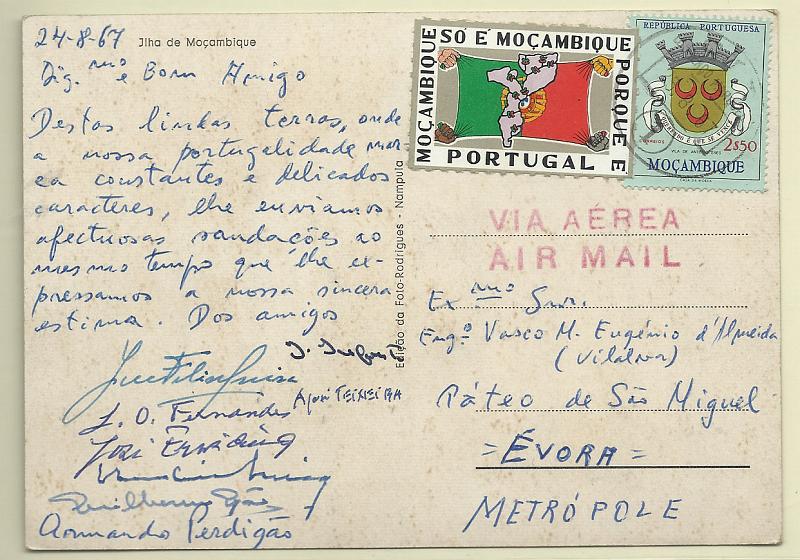 24-8-67
Ilha de Moçambique
Dig.mo e Bom Amigo
Destas lindas terras, onde
a nossa portugalidade mar
ca constantes e delicados
caracteres, lhe enviamos
afectuosas saudações ao
mesmo tempo que lhe ex-
pressamos a nossa sincera
estima. Dos amigos
J. O. Fernandes
Teixeira
Armando Perdigão
Edição da Foto-Rodrigues - Nampula
SÓ É MOÇAMBIQUE
MOÇAMBIQUE
PORQUE É
PORTUGAL
REPÚBLICA PORTUGUESA
CORREIOS
2$50
MOÇAMBIQUE
CASA DA MOEDA
VIA AÉREA
AIR MAIL
Ex.mo Snr.
Eng.o Vasco M. Eugénio d'Almeida
Páteo de São Miguel
= ÉVORA =
METRÓPOLE